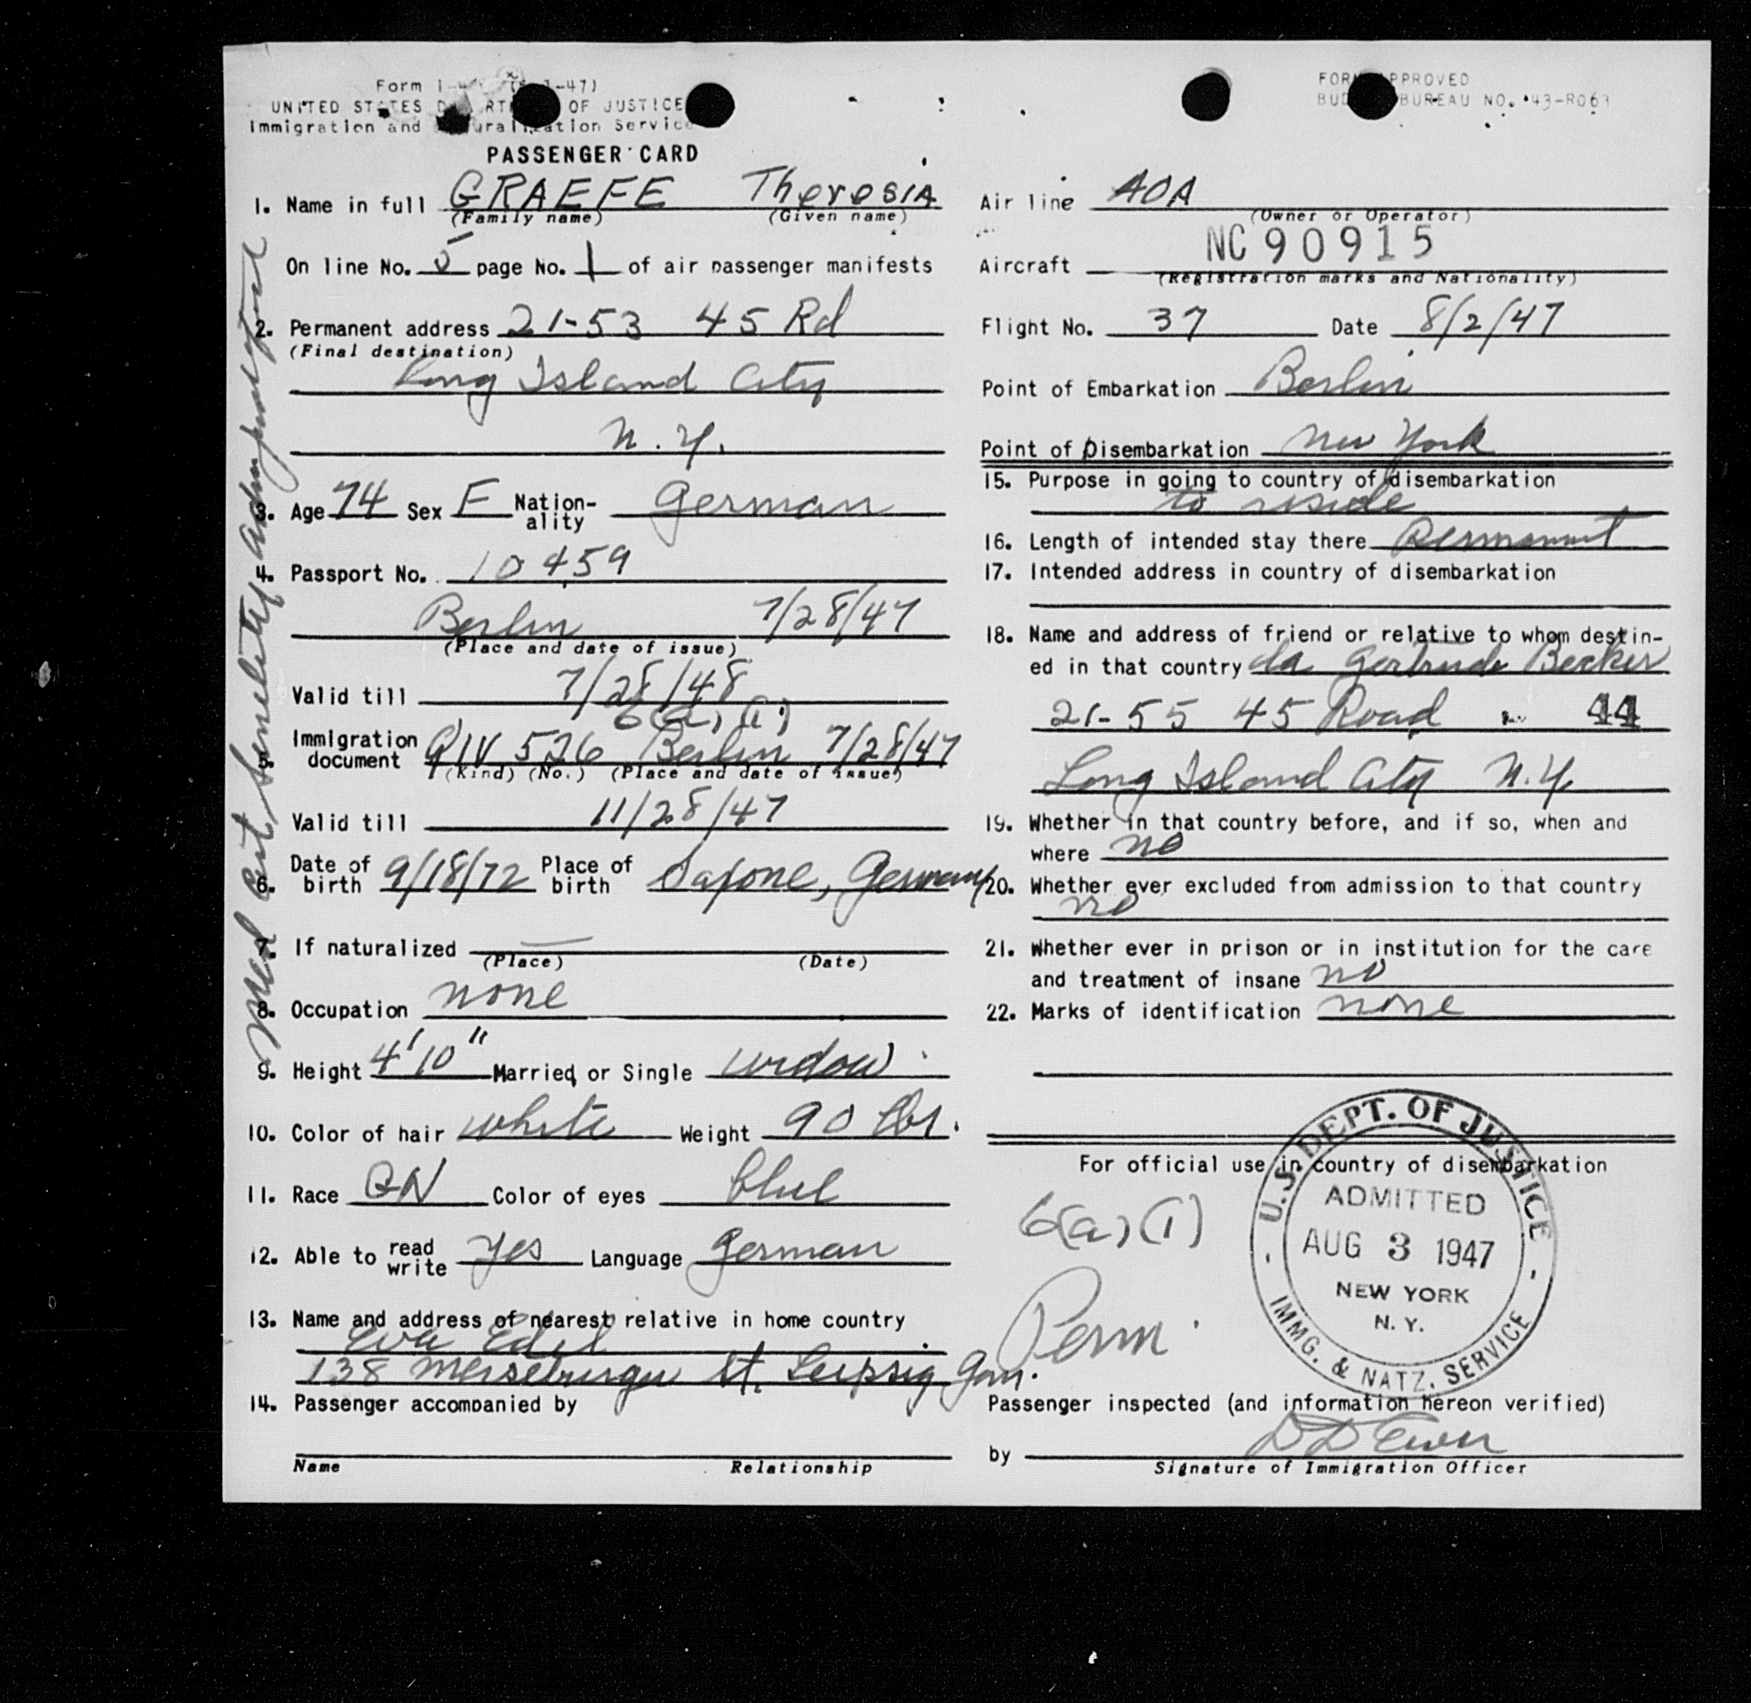 UNITED STATES OF JUSTICE
Immigration and Naturalization Service
PASSENGER CARD
1. Name in full GRAEFE Theresia
(Family name) (Given name)
On line No. 5 page No. 1 of air passenger manifests
2. Permanent address 21-53 45 Rd
(Final destination)
Long Island City
N.Y.
3. Age 74 Sex F Nation-ality German
4. Passport No. 10459
Berlin 7/28/47
(Place and date of issue)
Valid till 7/28/48
6(a)(1)
5. Immigration document QIV 526 Berlin 7/28/47
(Kind) (No.) (Place and date of issue)
Valid till 11/28/47
6. Date of birth 9/18/72 Place of birth Germany
7. If naturalized —
(Place) (Date)
8. Occupation none
9. Height 4'10" Married or Single widow
10. Color of hair white Weight 90 lbs.
11. Race Color of eyes blue
12. Able to read write yes Language German
13. Name and address of nearest relative in home country
Eva Edel
138 Merseburger St. Leipzig Ger.
14. Passenger accompanied by
Name Relationship
Med Cert Senility Adm
FORM APPROVED
BUDGET BUREAU NO. 43-R063
Air line AOA
(Owner or Operator)
Aircraft NC90915
(Registration marks and Nationality)
Flight No. 37 Date 8/2/47
Point of Embarkation Berlin
Point of Disembarkation New York
15. Purpose in going to country of disembarkation
to reside
16. Length of intended stay there Permanent
17. Intended address in country of disembarkation
18. Name and address of friend or relative to whom destin-
ed in that country da Gertrude Becker
21-55 45 Road 44
Long Island City N.Y.
19. Whether in that country before, and if so, when and
where no
20. Whether ever excluded from admission to that country
no
21. Whether ever in prison or in institution for the care
and treatment of insane no
22. Marks of identification none
For official use in country of disembarkation
6(a)(1)
Perm.
U.S. DEPT. OF JUSTICE
ADMITTED
AUG 3 1947
NEW YORK
N.Y.
IMMG. & NATZ. SERVICE
Passenger inspected (and information hereon verified)
by
Signature of Immigration Officer